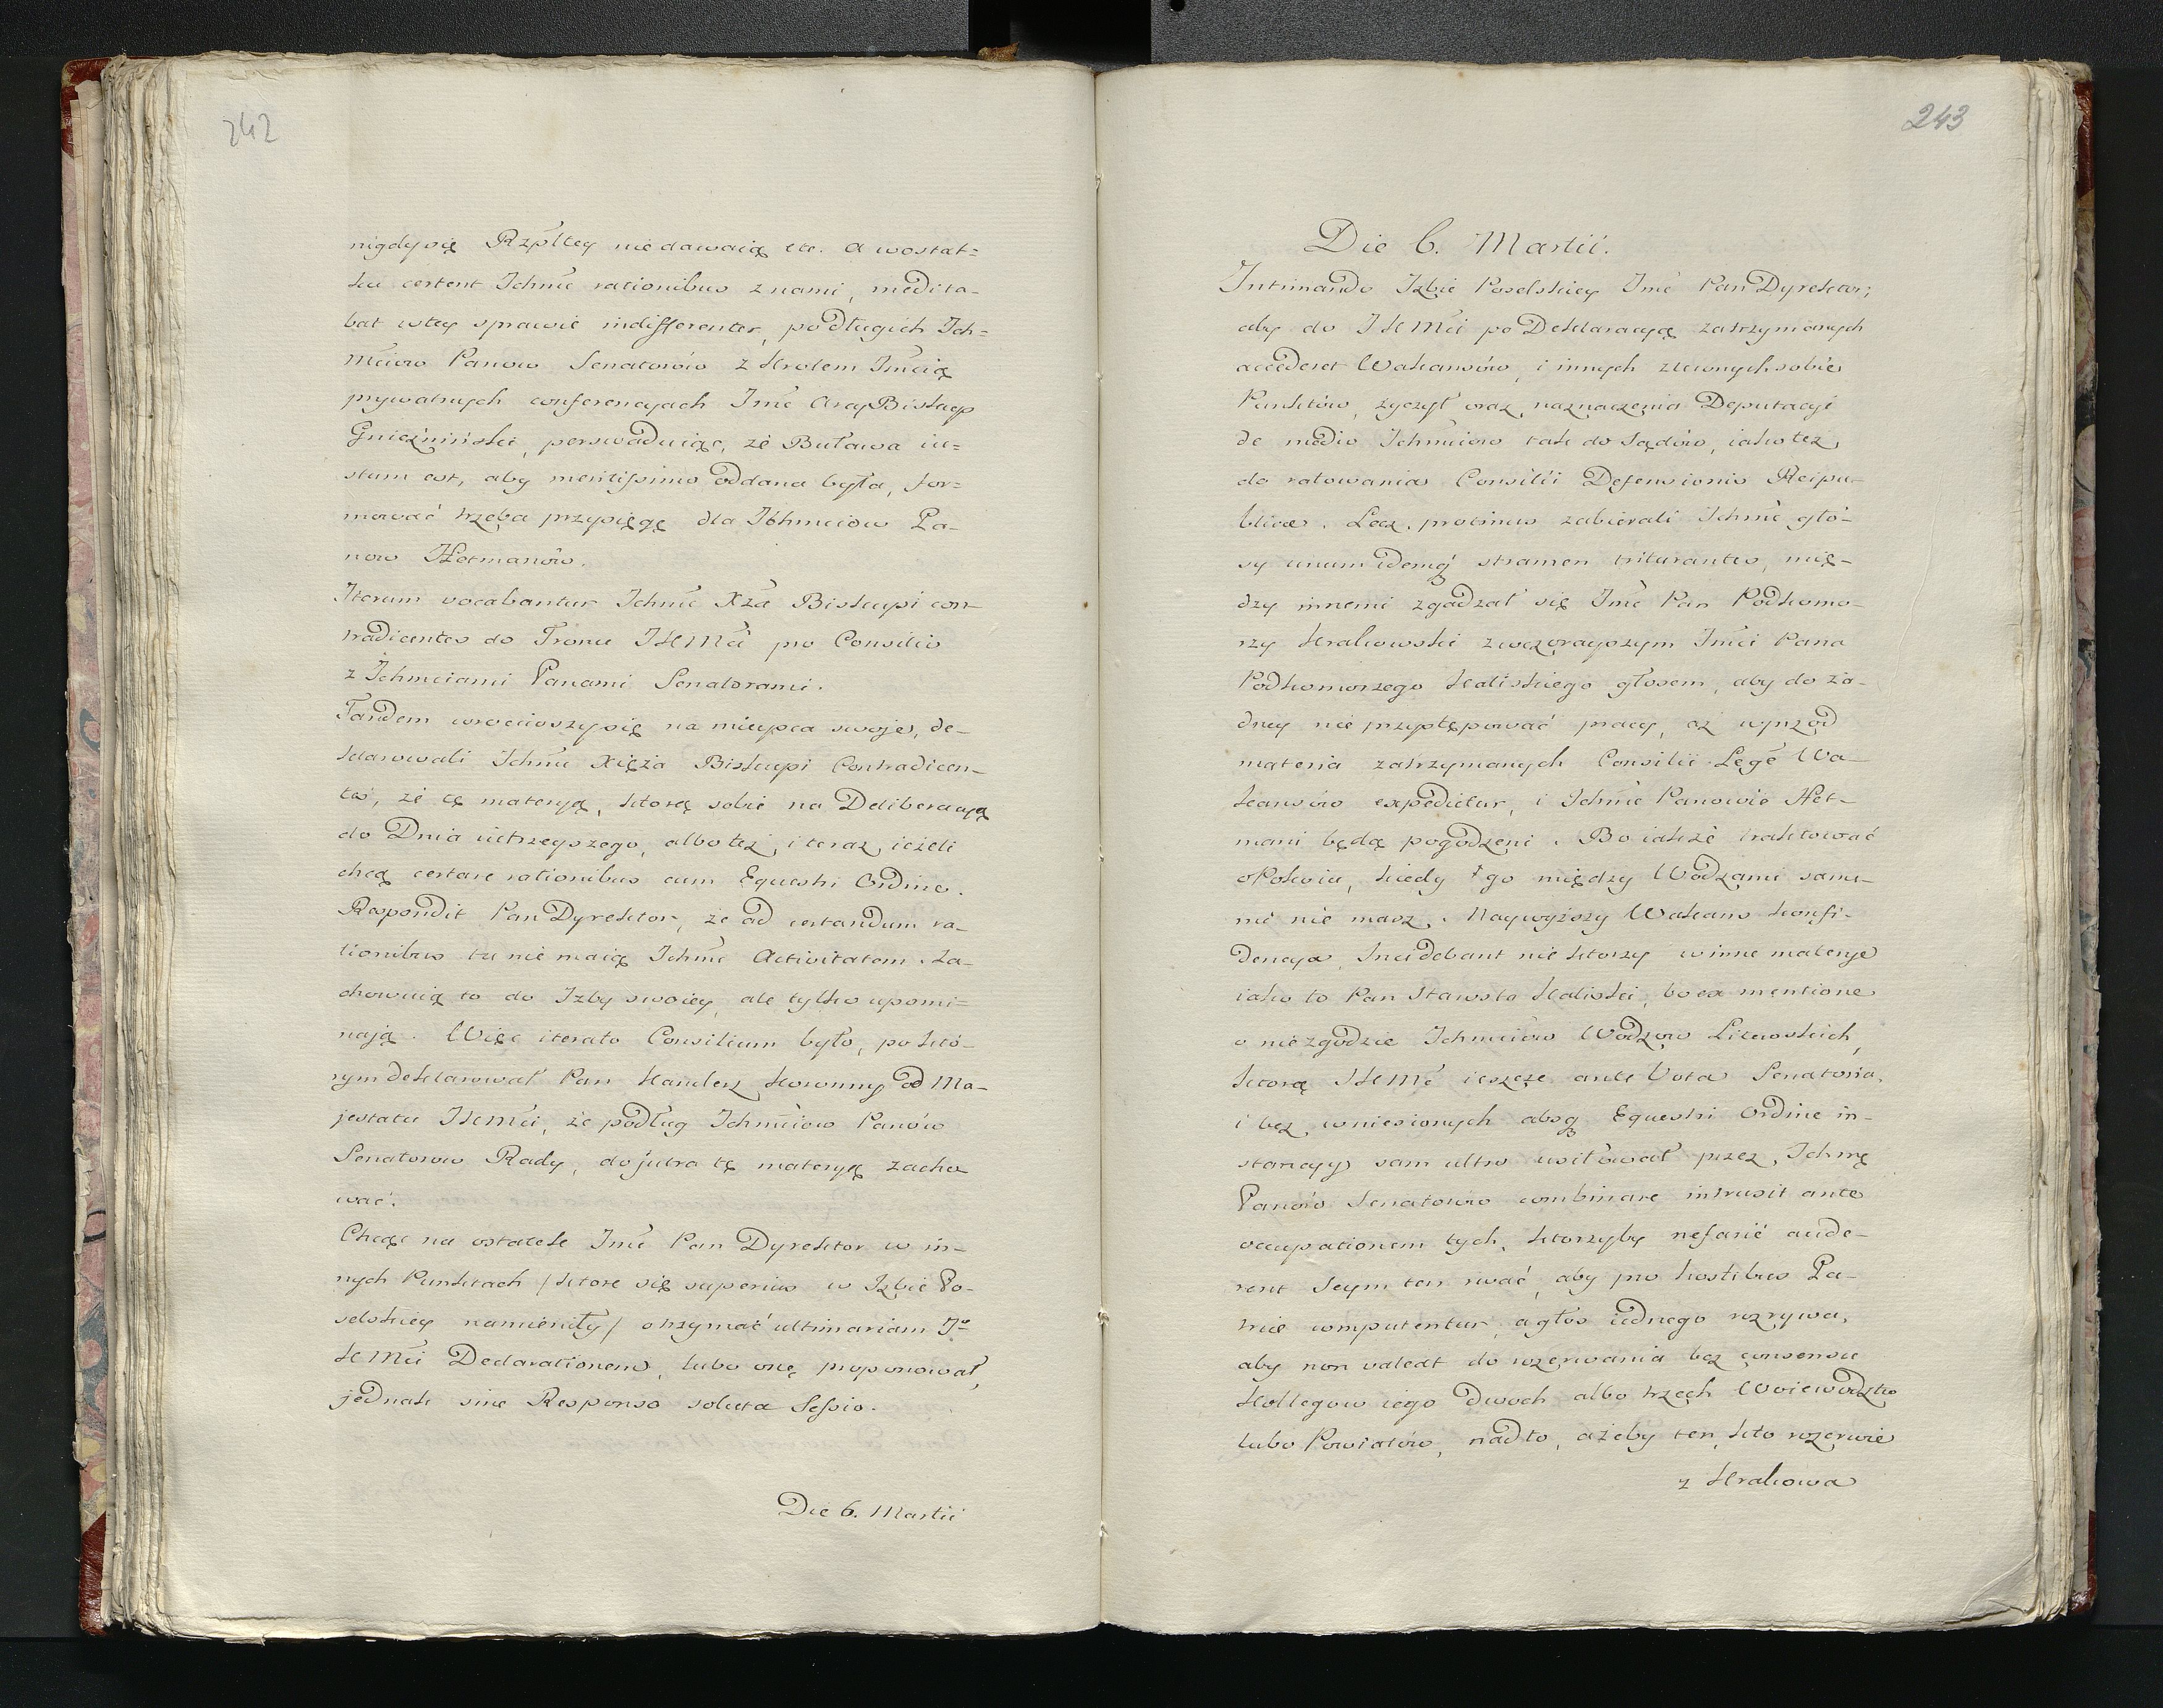 242
nigdy się Rzpltey nie dawaią etc. A wostat=
ku certent Ichmć rationibus z nami, medita-
bat wtey sprawie indifferenter, po długich Ich=
mciow Panow Senatorów z Krolem Jmcią
prywatnych conferencyach Jmć ArcyBiskup
Gnieźniński, perswaduiąc, że Buława iu=
stum est, aby meritissimo oddana była, for=
mować trzeba przysięgę dla Ichmciow Pa-
now Hetmanów.
Iterum vocabantur Ichmć Xża Biskupi con-
tradicentes do Tronu JKMci pro Consilio
z Ichmciami Panami Senatorami.
Tandem wrociwszy się na mieysca swoje, de-
klarowali Ichmć Xięża Biskupi Contradicen-
tes, że tę materyą, ktorą sobie na Deliberacyą
do Dnia iutrzeyszego, albo też i teraz, ieżeli
chcą certare rationibus cum Equestri Ordine.
Respondit Pan Dyrektor, że ad certandum ra-
tionibus tu nie maią Ichmć Activitatem. Za-
chowuią to do Izby swoiey, ale tylko upomi-
nają. Więc iterato Consilium było, po któ-
rym deklarował Pan Kanclerz Koronny od Ma-
jestatu JKMci, że podług Ichmciow Panów
Senatorow Rady, do jutra tę materyą zacho
wać.
Chcąc na ostatek Jmć Pan Dyrektor w in-
nych Punktach /ktore się superius w Izbie Po-
selskiey namieniły/ otrzymać ultimariam J=
KMci Declarationem, lubo onę proponował,
jednak sine Responso soluta Sessio.
Die 6. Martii
243
Die 6. Martii.
Intimando Izbie Poselskiey Jmć Pan Dyrektor;
aby do JKMci po Deklaracyą zatrzymanych
accederet Wakansów, i innych zleconych sobie
Punktów, życzył oraz naznaczenia Deputacyi
de medio Ichmciow tak do Sądów, iako też
do ratowania Consilii Defensionis Reipu-
blicae. Lecz protinus zabierali Ichmć gło-
sy unum idemq stramen triturantes, mię-
dzy innemi zgadzał się Jmć Pan Podkomo-
rzy Krakowski z wczorayszym Jmci Pana
Podkomorzego Kaliskiego głosem, aby do ża-
dney nie przystępować pracy, aż wprzod
materia zatrzymanych Consilii Lege Wa-
kansów expedietur, i Ichmć Panowie Het-
mani będą pogodzeni. Bo iakże traktować
o Pokoiu, kiedy go między Wodzami same-
mi nie masz. Naywyższy Wakans konfi-
dencya. Incidebant nie ktorzy w inne materye
iako to Pan Starosta Kaliski, bo ex mentione
o niezgodzie Ichmciow Wodzow Litewskich,
ktorą JKMć ieszcze ante Vota Senatoria,
i bez wniesionych absq Equestri Ordine in-
stancyy sam ultro usiłował przez Ichmę
Panów Senatorow combinare intrusit ante
occupationem tych, ktorzyby nefarie aude-
rent Seym ten rwać, aby pro hostibus Pa-
triae computentur, a głos iednego rozrywa,
aby non valeat do rozerwania bez consensu
Kollegow iego dwoch albo trzech Woiewodztw
lubo Powiatów, nadto, ażeby ten, kto rozerwie
z Krakowa